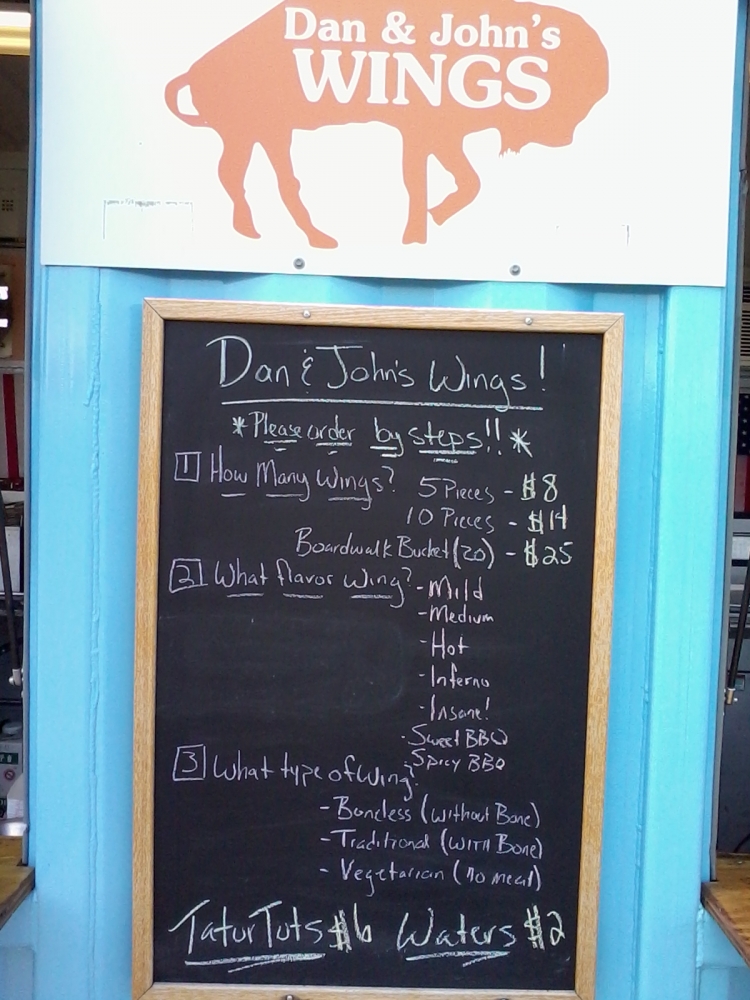 Dan & John's
WINGS
Dan & John's Wings!
*Please order by steps!!*
1 How Many Wings? 5 Pieces - $8
10 Pieces - $14
Boardwalk Bucket (20) - $25
2 What flavor wing? - Mild
- Medium
- Hot
- Inferno
- Insane!
- Sweet BBQ
- Spicy BBQ
3 What type of wing?
- Boneless (without Bone)
- Traditional (with Bone)
- Vegetarian (no meat)
Tatur Tuts $6 Waters $2